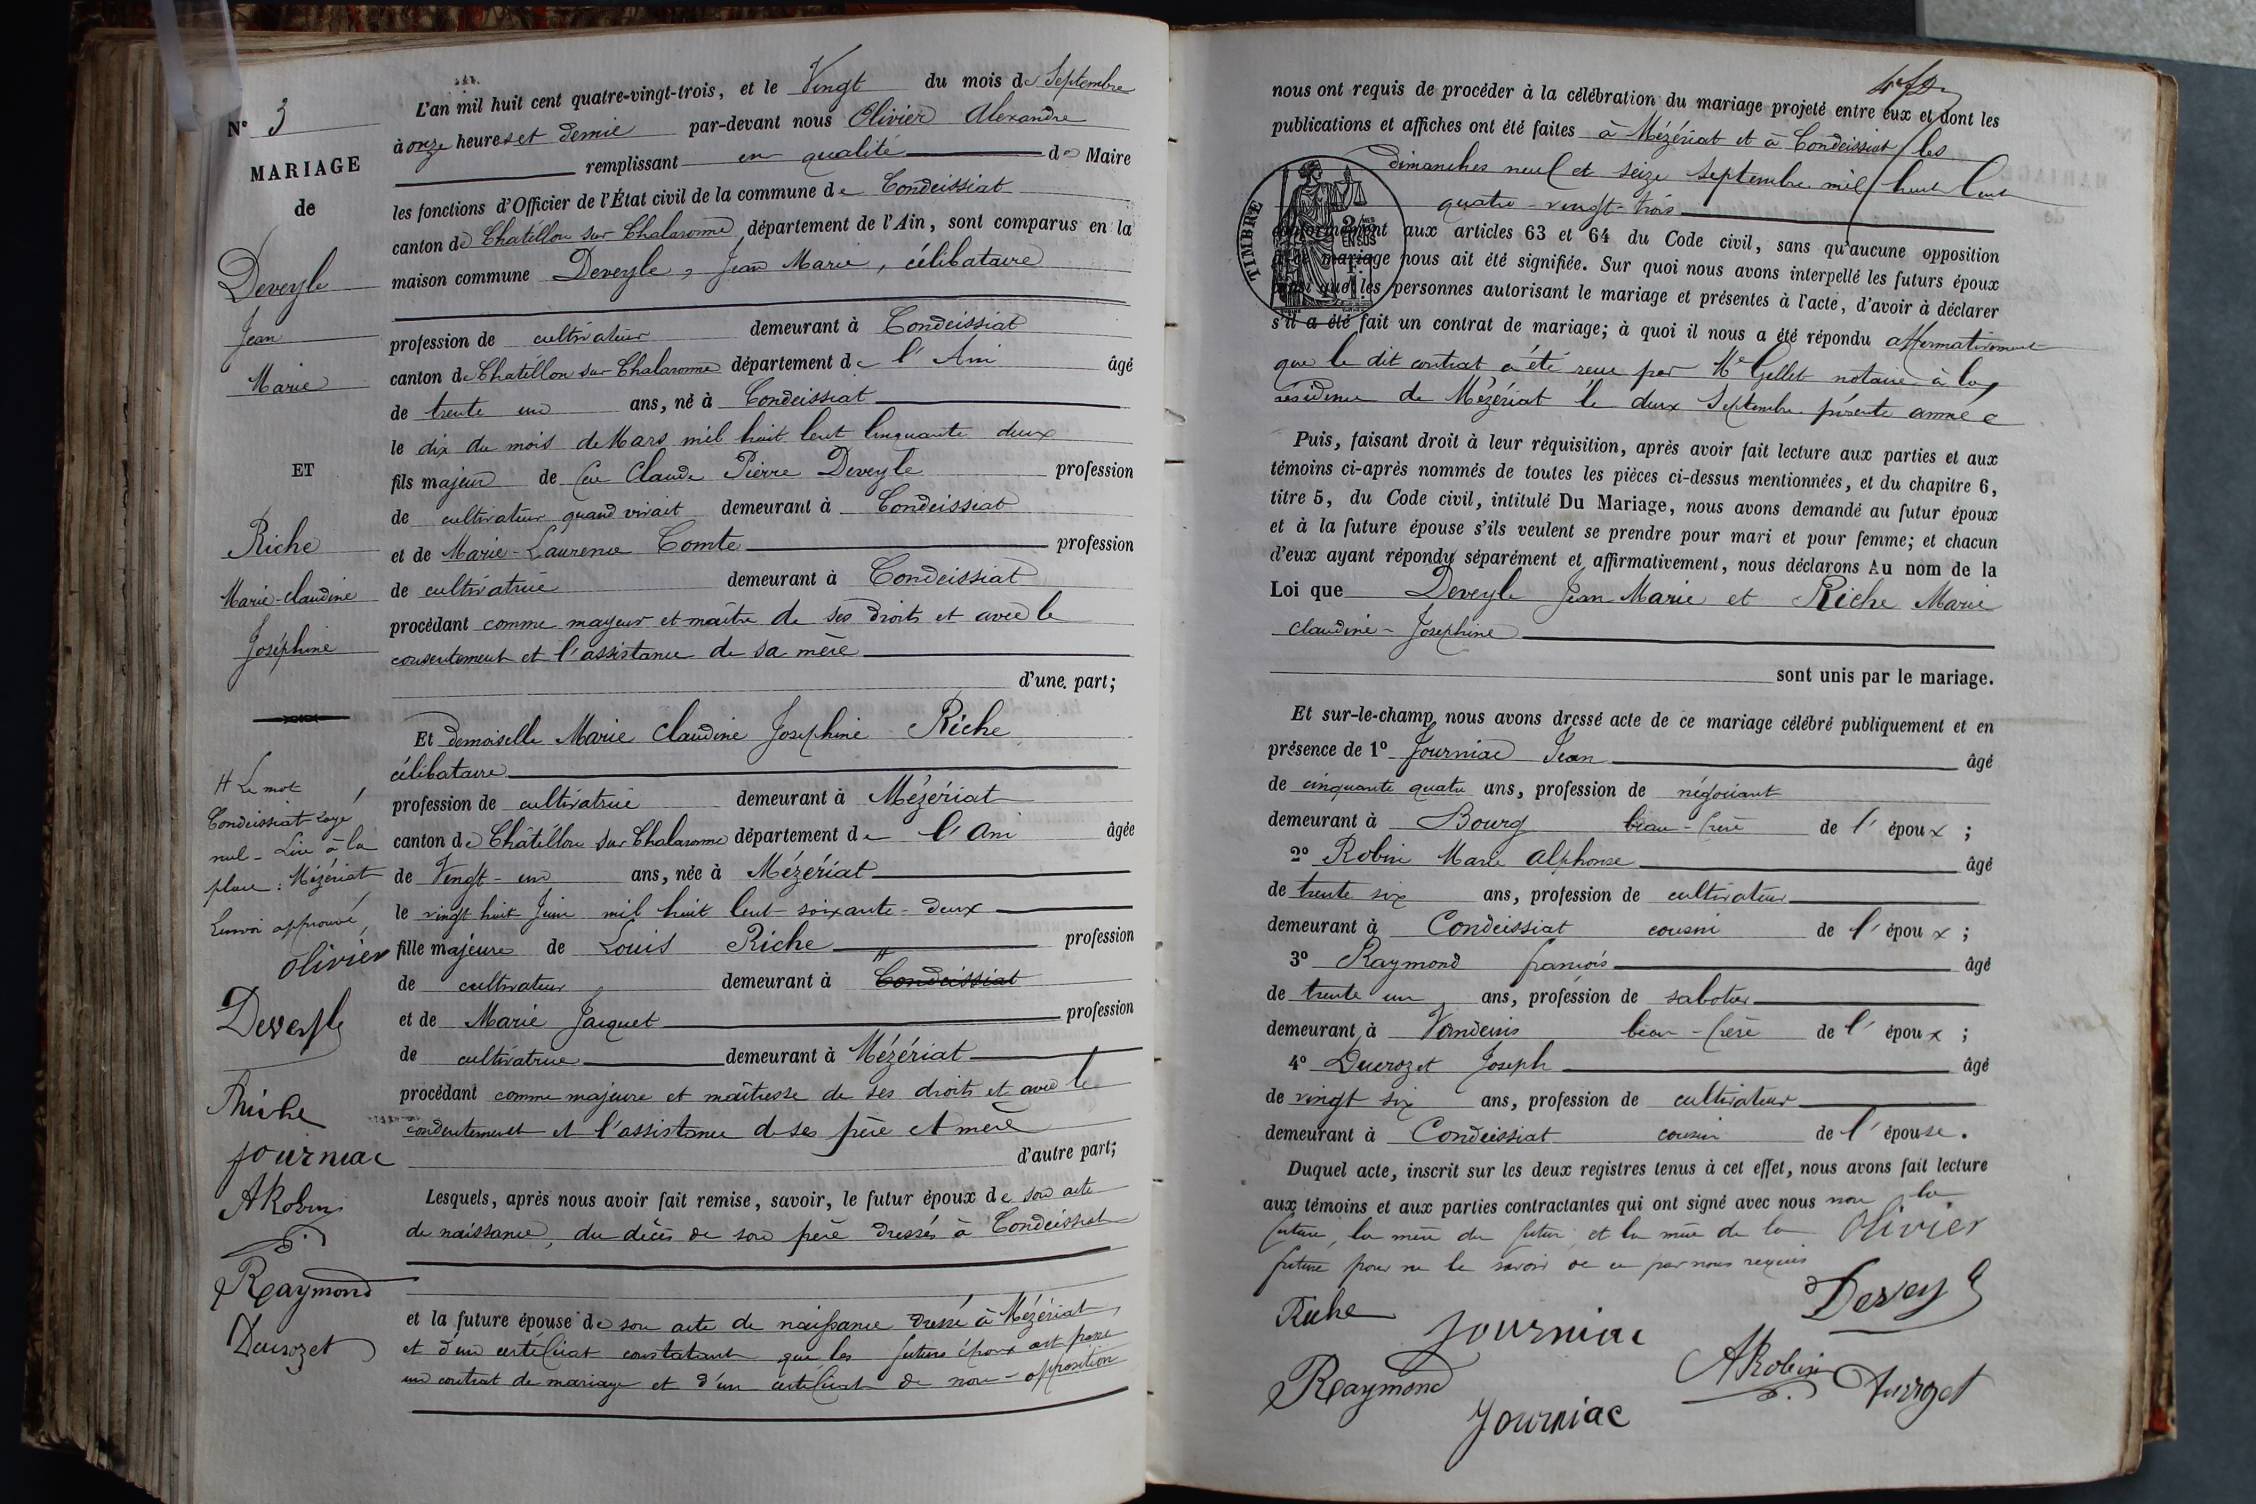 N° 3
MARIAGE
de
Deveyle
Jean
Marie
ET
Riche
Marie-claudine
Joséphine
# Le mot
Condeissiat rayé
nul - Lire à la
place : Mézériat
Renvoi approuvé
Olivier
Deveyle
Riche
Journiac
A Robin
Raymond
Ducrozet
L'an mil huit cent quatre-vingt-trois, et le Vingt du mois de Septembre
à onze heures et demie par-devant nous Olivier Alexandre
remplissant en qualité de Maire
les fonctions d'Officier de l'État civil de la commune de Condeissiat
canton de Chatillon sur Chalaronne, département de l'Ain, sont comparus en la
maison commune Deveyle, Jean Marie, célibataire
profession de cultivateur demeurant à Condeissiat
canton de Chatillon sur Chalaronne département de l'Ain âgé
de trente un ans, né à Condeissiat
le dix du mois de Mars mil huit Cent Cinquante deux
fils majeur de feu Claude Pierre Deveyle profession
de cultivateur quand vivait demeurant à Condeissiat
et de Marie-Laurence Comte profession
de cultivatrice demeurant à Condeissiat
procédant comme majeur et maître de ses droits et avec le
consentement et l'assistance de sa mère
d'une part;
Et demoiselle Marie Claudine Josephine Riche
célibataire
profession de cultivatrice demeurant à Mézériat
canton de Châtillon sur Chalaronne département de l'Ain âgée
de Vingt-un ans, née à Mézériat
le vingt huit Juin mil huit Cent-soixante-deux
fille majeure de Louis Riche profession
de cultivateur demeurant à # Condeissiat
et de Marie Jacquet profession
de cultivatrice demeurant à Mézériat
procédant comme majeure et maîtresse de ses droits et avec le
consentement et l'assistance de ses père et mère
d'autre part;
Lesquels, après nous avoir fait remise, savoir, le futur époux de son acte
de naissance, du décès de son père dressés à Condeissiat
et la future épouse de son acte de naissance dressé à Mézériat
et d'un certificat constatant que les futurs époux ont passé
un contrat de mariage et d'un certificat de non-opposition
nous ont requis de procéder à la célébration du mariage projeté entre eux et dont les
publications et affiches ont été faites à Mézériat et à Condeissiat les
dimanches neuf et seize Septembre mil huit Cent
quatre-vingt-trois
TIMBRE
conformément aux articles 63 et 64 du Code civil, sans qu'aucune opposition
à ce mariage nous ait été signifiée. Sur quoi nous avons interpellé les futurs époux
ainsi que les personnes autorisant le mariage et présentes à l'acte, d'avoir à déclarer
s'il a été fait un contrat de mariage; à quoi il nous a été répondu affirmativement
que le dit contrat a été recu par Me Gellet notaire à la
résidence de Mézériat le deux Septembre présente année
Puis, faisant droit à leur réquisition, après avoir fait lecture aux parties et aux
témoins ci-après nommés de toutes les pièces ci-dessus mentionnées, et du chapitre 6,
titre 5, du Code civil, intitulé Du Mariage, nous avons demandé au futur époux
et à la future épouse s'ils veulent se prendre pour mari et pour femme; et chacun
d'eux ayant répondu séparément et affirmativement, nous déclarons Au nom de la
Loi que Deveyle Jean Marie et Riche Marie
claudine-Josephine
sont unis par le mariage.
Et sur-le-champ, nous avons dressé acte de ce mariage célébré publiquement et en
présence de 1° Journiac Jean âgé
de cinquante quatre ans, profession de négociant
demeurant à Bourg beau-frère de l'époux;
2° Robin Marie Alphonse âgé
de trente six ans, profession de cultivateur
demeurant à Condeissiat cousin de l'époux;
3° Raymond françois âgé
de trente un ans, profession de sabotier
demeurant à Vandeins beau-frère de l'époux;
4° Ducrozet Joseph âgé
de vingt six ans, profession de cultivateur
demeurant à Condeissiat cousin de l'épouse.
Duquel acte, inscrit sur les deux registres tenus à cet effet, nous avons fait lecture
aux témoins et aux parties contractantes qui ont signé avec nous non la
future, la mère du futur et la mère de la
future pour ne le savoir de ce par nous requis
Olivier
Deveyle
Riche
Journiac
A Robin
Raymond
Journiac
Ducrozet